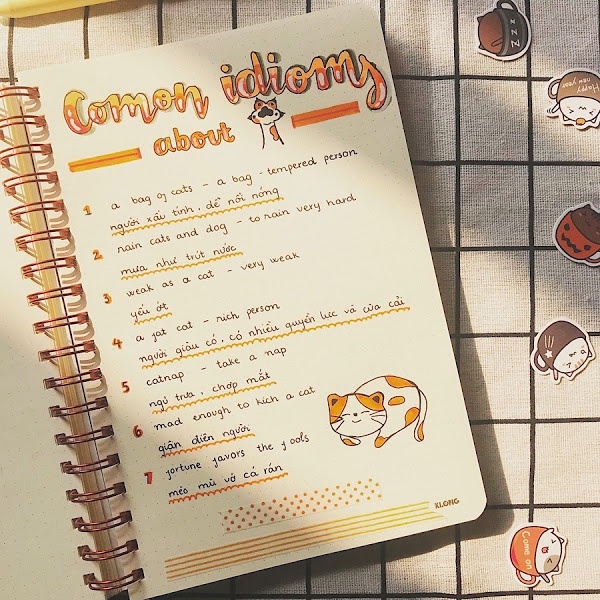 Comon idioms
about
1 a bag of cats - a bag - tempered person
người xấu tính, dễ nổi nóng
2 rain cats and dog - to rain very hard
mưa như trút nước
3 weak as a cat - very weak
yếu ớt
4 a fat cat - rich person
người giàu có, có nhiều quyền lực và của cải
5 catnap - take a nap
ngủ trưa, chợp mắt
6 mad enough to kich a cat
giận điên người
7 fortune favors the fools
mèo mù vớ cá rán
XLONG
ZZZ
Happy new year
Come on